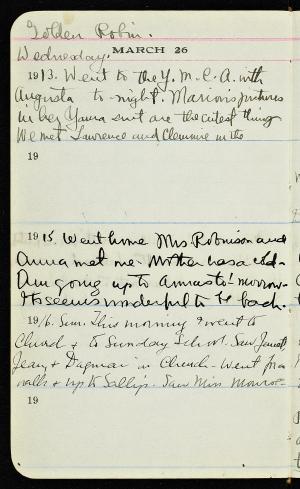 Golden Robin.
Wednesday.
MARCH 26
1913. Went to the Y. M. C. A. with
Augusta to-night. Marion's pictures
in her Yama suit are the cutest things
We met Lawrence and Clemmie in the
19
1915. Went home Mrs. Robinson and
Anna met me. Mother has a cold.
Am going up to Anna's to-morrow.
It seems wonderful to be back.
1916. Sun. This morning I went to
Church & to Sunday School. Saw Janet
Jean & Dagmar in Church. Went for a
walk & up to Sallip's. Saw Miss Monroe
19